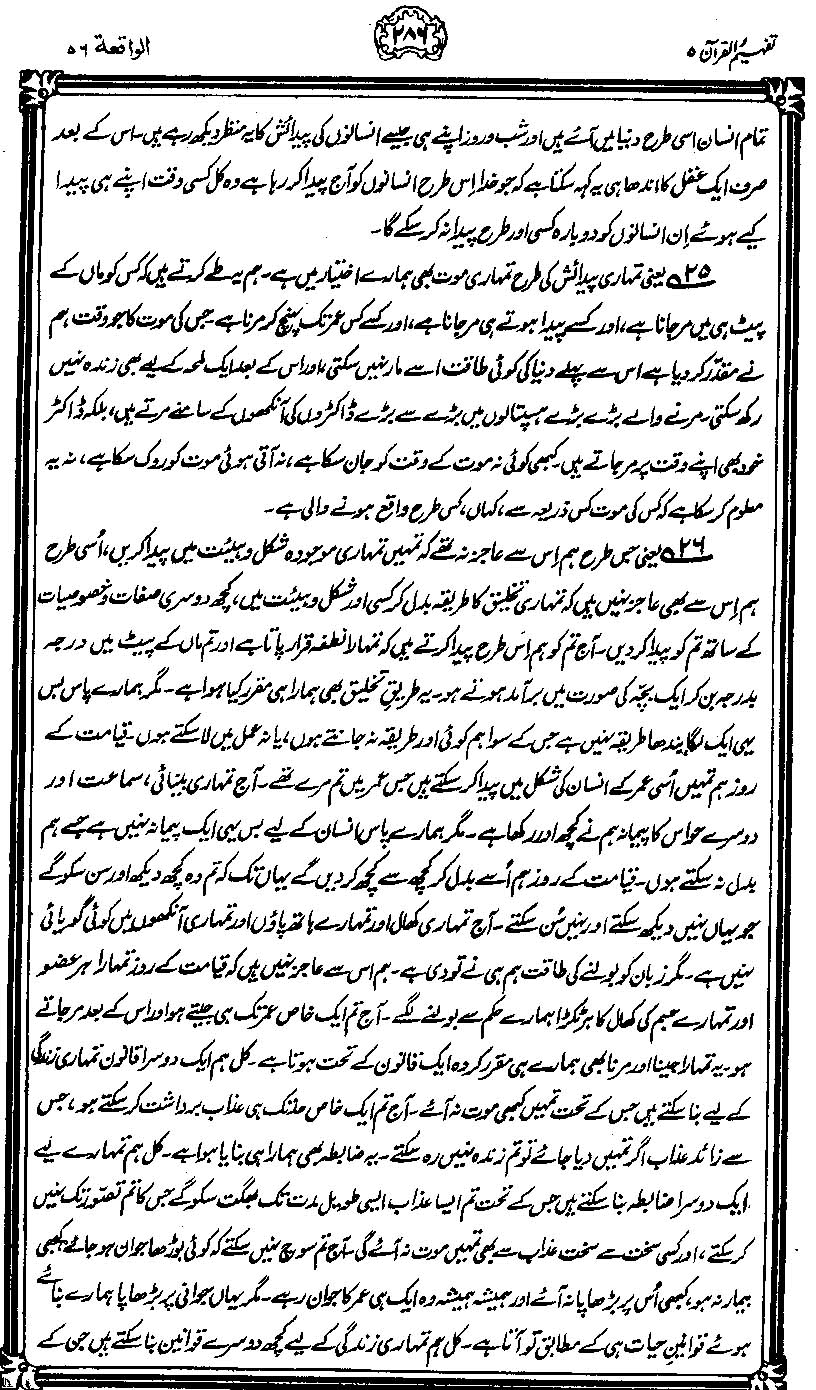 تفہیم القرآن ۵
۲۸۶
الواقعۃ ۵۶
تمام انسان اسی طرح دنیا میں آئے ہیں اور شب و روز اپنے ہی جیسے انسانوں کی پیدائش کا یہ منظر دیکھ رہے ہیں۔ اس کے بعد
صرف ایک عقل کا اندھا ہی یہ کہہ سکتا ہے کہ جو خدا اِس طرح انسانوں کو آج پیدا کر رہا ہے وہ کل کسی وقت اپنے ہی پیدا
کیے ہوئے اِن انسانوں کو دوبارہ کسی اور طرح پیدا نہ کر سکے گا۔
۲۵ یعنی تمہاری پیدائش کی طرح تمہاری موت بھی ہمارے اختیار میں ہے۔ ہم یہ طے کرتے ہیں کہ کس کو ماں کے
پیٹ ہی میں مر جانا ہے، اور کسے پیدا ہوتے ہی مر جانا ہے، اور کسے کس عمر تک پہنچ کر مرنا ہے۔ جس کی موت کا جو وقت ہم
نے مقدّر کر دیا ہے اس سے پہلے دنیا کی کوئی طاقت اسے مار نہیں سکتی، اور اس کے بعد ایک لمحہ کے لیے بھی زندہ نہیں
رکھ سکتی۔ مرنے والے بڑے بڑے ہسپتالوں میں بڑے سے بڑے ڈاکٹروں کی آنکھوں کے سامنے مرتے ہیں، بلکہ ڈاکٹر
خود بھی اپنے وقت پر مر جاتے ہیں۔ کبھی کوئی نہ موت کے وقت کو جان سکا ہے، نہ آتی ہوئی موت کو روک سکا ہے، نہ یہ
معلوم کر سکا ہے کہ کس کی موت کس ذریعہ سے، کہاں، کس طرح واقع ہونے والی ہے۔
۲۶ یعنی جس طرح ہم اِس سے عاجز نہ تھے کہ تمہیں تمہاری موجودہ شکل و ہیئت میں پیدا کریں، اُسی طرح
ہم اِس سے بھی عاجز نہیں ہیں کہ تمہاری تخلیق کا طریقہ بدل کر کسی اور شکل و ہیئت میں، کچھ دوسری صفات و خصوصیات
کے ساتھ تم کو پیدا کر دیں۔ آج تم کو ہم اِس طرح پیدا کرتے ہیں کہ تمہارا نطفہ قرار پاتا ہے اور تم ماں کے پیٹ میں درجہ
بدرجہ بن کر ایک بچہ کی صورت میں برآمد ہوتے ہو۔ یہ طریقِ تخلیق بھی ہمارا ہی مقرر کیا ہوا ہے۔ مگر ہمارے پاس بس
یہی ایک لگا بندھا طریقہ نہیں ہے جس کے سوا ہم کوئی اور طریقہ نہ جانتے ہوں، یا نہ عمل میں لا سکتے ہوں۔ قیامت کے
روز ہم تمہیں اُسی عمر کے انسان کی شکل میں پیدا کر سکتے ہیں جس عمر میں تم مرے تھے۔ آج تمہاری بینائی، سماعت اور
دوسرے حواس کا پیمانہ ہم نے کچھ اور رکھا ہے۔ مگر ہمارے پاس انسان کے لیے بس یہی ایک پیمانہ نہیں ہے جسے ہم
بدل نہ سکتے ہوں۔ قیامت کے روز ہم اُسے بدل کر کچھ سے کچھ کر دیں گے یہاں تک کہ تم وہ کچھ دیکھ اور سن سکو گے
جو یہاں نہیں دیکھ سکتے اور نہیں سُن سکتے۔ آج تمہاری کھال اور تمہارے ہاتھ پاؤں اور تمہاری آنکھوں میں کوئی گویائی
نہیں ہے۔ مگر زبان کو بولنے کی طاقت ہم ہی نے تو دی ہے۔ ہم اس سے عاجز نہیں ہیں کہ قیامت کے روز تمہارا ہر عضو
اور تمہارے جسم کی کھال کا ہر ٹکڑا ہمارے حکم سے بولنے لگے۔ آج تم ایک خاص عمر تک ہی جیتے ہو اور اس کے بعد مر جاتے
ہو۔ یہ تمہارا جینا اور مرنا بھی ہمارے ہی مقرر کردہ ایک قانون کے تحت ہوتا ہے۔ کل ہم ایک دوسرا قانون تمہاری زندگی
کے لیے بنا سکتے ہیں جس کے تحت تمہیں کبھی موت نہ آئے۔ آج تم ایک خاص حد تک ہی عذاب برداشت کر سکتے ہو، جس
سے زائد عذاب اگر تمہیں دیا جائے تو تم زندہ نہیں رہ سکتے۔ یہ ضابطہ بھی ہمارا ہی بنایا ہوا ہے۔ کل ہم تمہارے لیے
ایک دوسرا ضابطہ بنا سکتے ہیں جس کے تحت تم ایسا عذاب ایسی طویل مدت تک بھگت سکو گے جس کا تم تصّور تک نہیں
کر سکتے، اور کسی سخت سے سخت عذاب سے بھی تمہیں موت نہ آئے گی۔ آج تم سوچ نہیں سکتے کہ کوئی بوڑھا جوان ہو جائے، کبھی
بیمار نہ ہو، کبھی اُس پر بڑھاپا نہ آئے اور ہمیشہ ہمیشہ وہ ایک ہی عمر کا جوان رہے۔ مگر یہاں جوانی پر بڑھاپا ہمارے بنائے
ہوئے قوانینِ حیات ہی کے مطابق تو آتا ہے۔ کل ہم تمہاری زندگی کے لیے کچھ دوسرے قوانین بنا سکتے ہیں جن کے